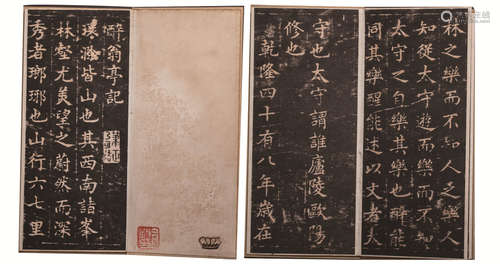 醉翁亭記
環滁皆山也其西南諸峯
林壑尤美望之蔚然而深
秀者瑯琊也山行六七里
林之樂而不知人之樂人
知從太守遊而樂而不知
太守之自樂其樂也醉能
同其樂醒能述以文者太
守也太守謂誰廬陵歐陽
修也
乾隆四十有八年歲在